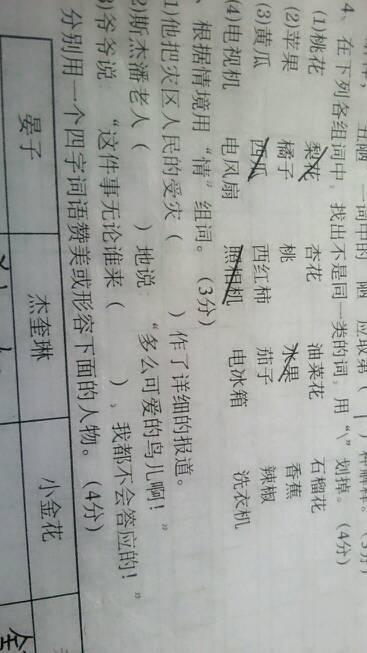 丑陋 一词中的 陋 应取第( 1 )种解释。(3分)
4、在下列各组词中,找出不是同一类的词,用“\”划掉。(4分)
(1)桃花 梨花 杏花 油菜花 石榴花
(2)苹果 橘子 桃 水果 香蕉
(3)黄瓜 西瓜 西红柿 茄子 辣椒
(4)电视机 电风扇 照相机 电冰箱 洗衣机
、根据情境用“情”组词。(3分)
1)他把灾区人民的受灾( )作了详细的报道。
2)斯杰潘老人( )地说:“多么可爱的鸟儿啊!”
3)爷爷说:“这件事无论谁来( ),我都不会答应的!”
分别用一个四字词语赞美或形容下面的人物。(4分)
晏子 杰奎琳 小金花